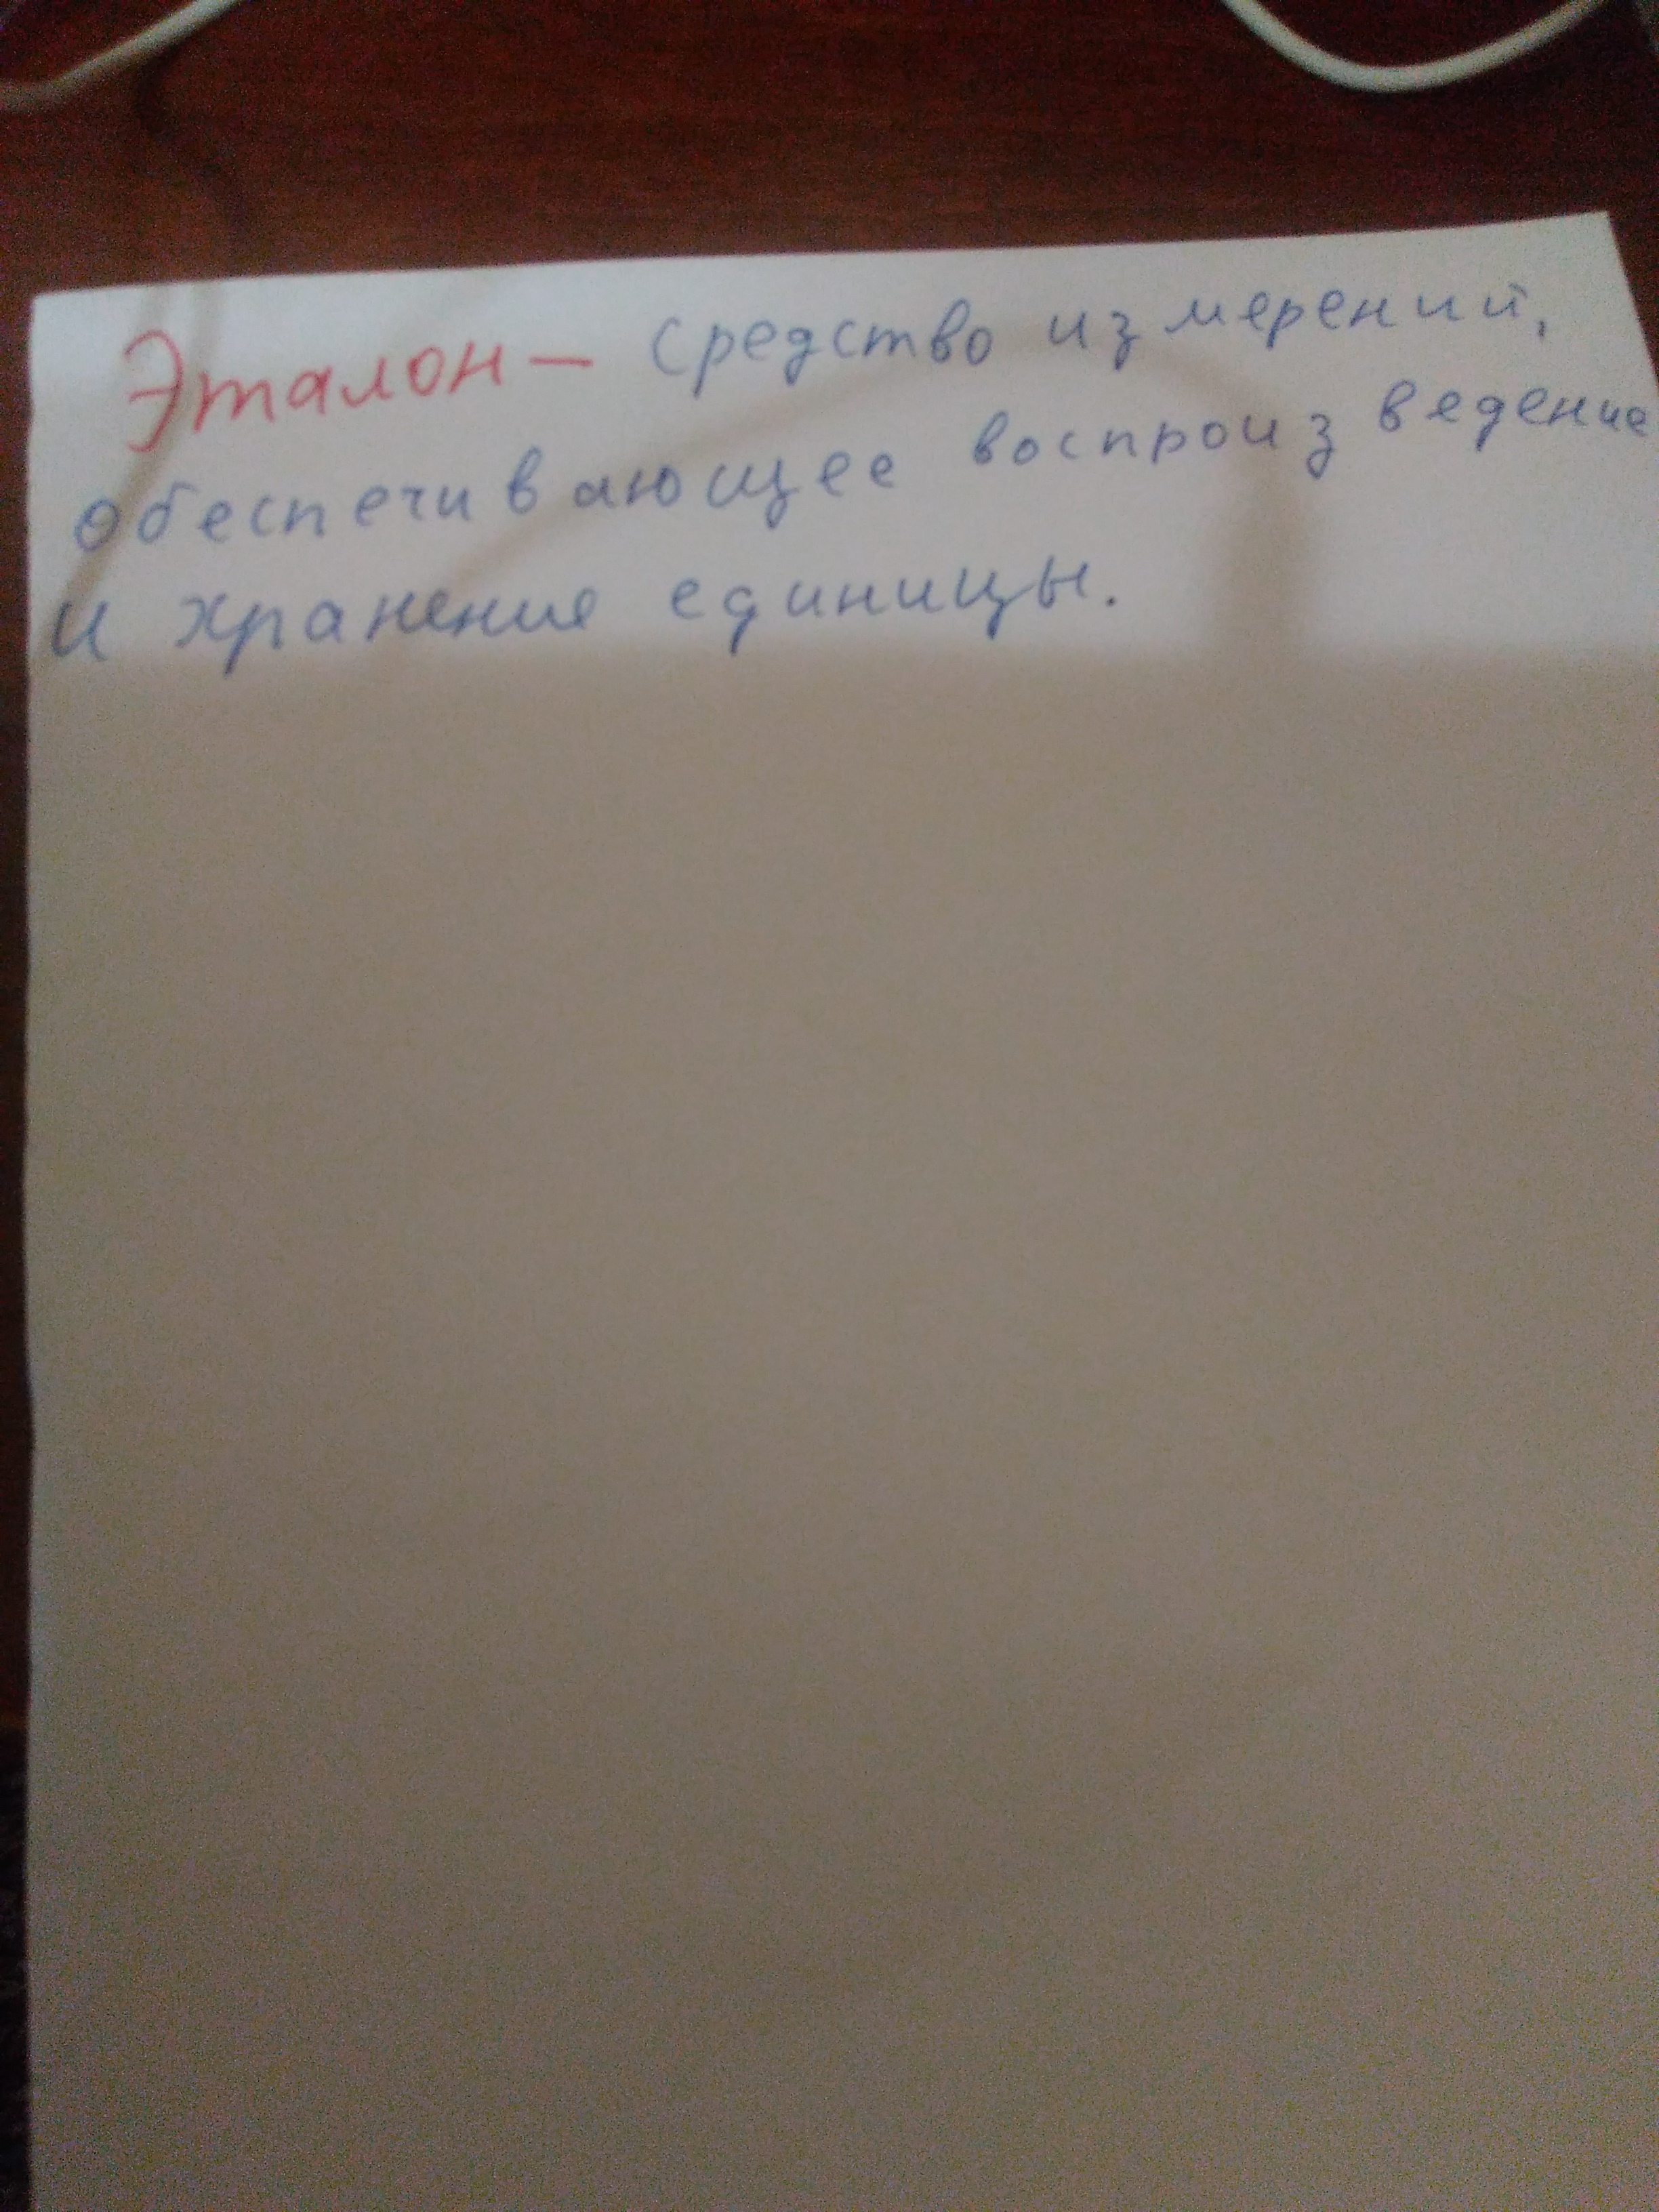 Эталон — средство измерений,
обеспечивающее воспроизведение
и хранение единицы.